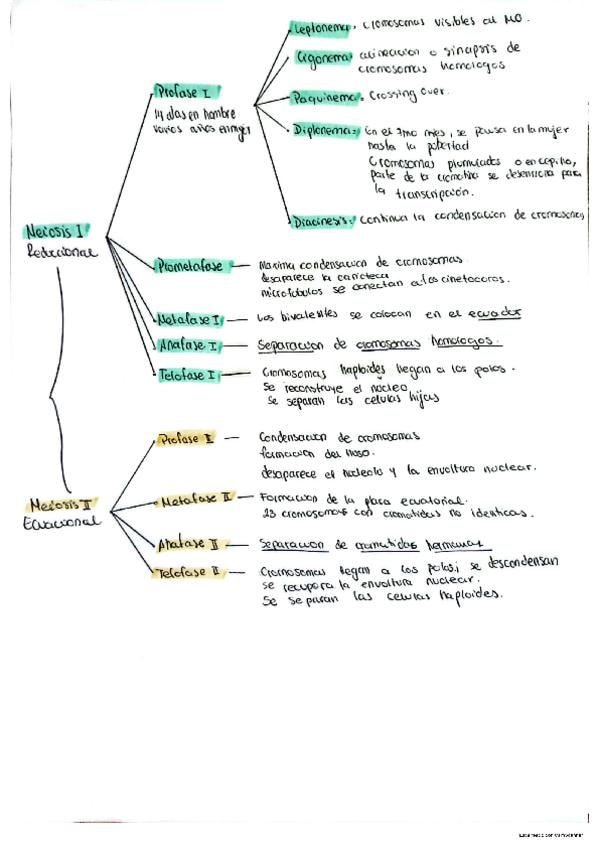 Leptonema. Cromosomas visibles al MO.
Cigonema: alineación o sinapsis de
cromosomas homologos
Profase I
14 días en hombre
varios años en mujer
Paquinema: Crossing over.
Diplonema: En el 7mo mes, se pausa en la mujer
hasta la pubertad
Cromosomas plumulados o en cepillo,
parte de la cromatina se desenrolla para
la transcripción.
Diacinesis: Continua la condensación de cromosomas
Meiosis I
Reduccional
Prometafase — Maxima condensacion de cromosomas.
desaparece la carioteca
microtúbulos se conectan a los cinetocoros.
Metafase I — Los bivalentes se colocan en el ecuador
Anafase I — Separacion de cromosomas homologos.
Telofase I — Cromosomas haploides llegan a los polos.
Se reconstruye el núcleo
Se separan las celulas hijas
Profase II — Condensacion de cromosomas
formacion del huso.
desaparece el nucleolo y la envoltura nuclear.
Meiosis II
Ecuacional
Metafase II — Formacion de la placa ecuatorial.
23 cromosomas con cromatidas no identicas.
Anafase II — Separacion de cromatidas hermanas
Telofase II — Cromosomas llegan a los polos; se descondensan
se recupera la envoltura nuclear.
Se separan las celulas haploides.